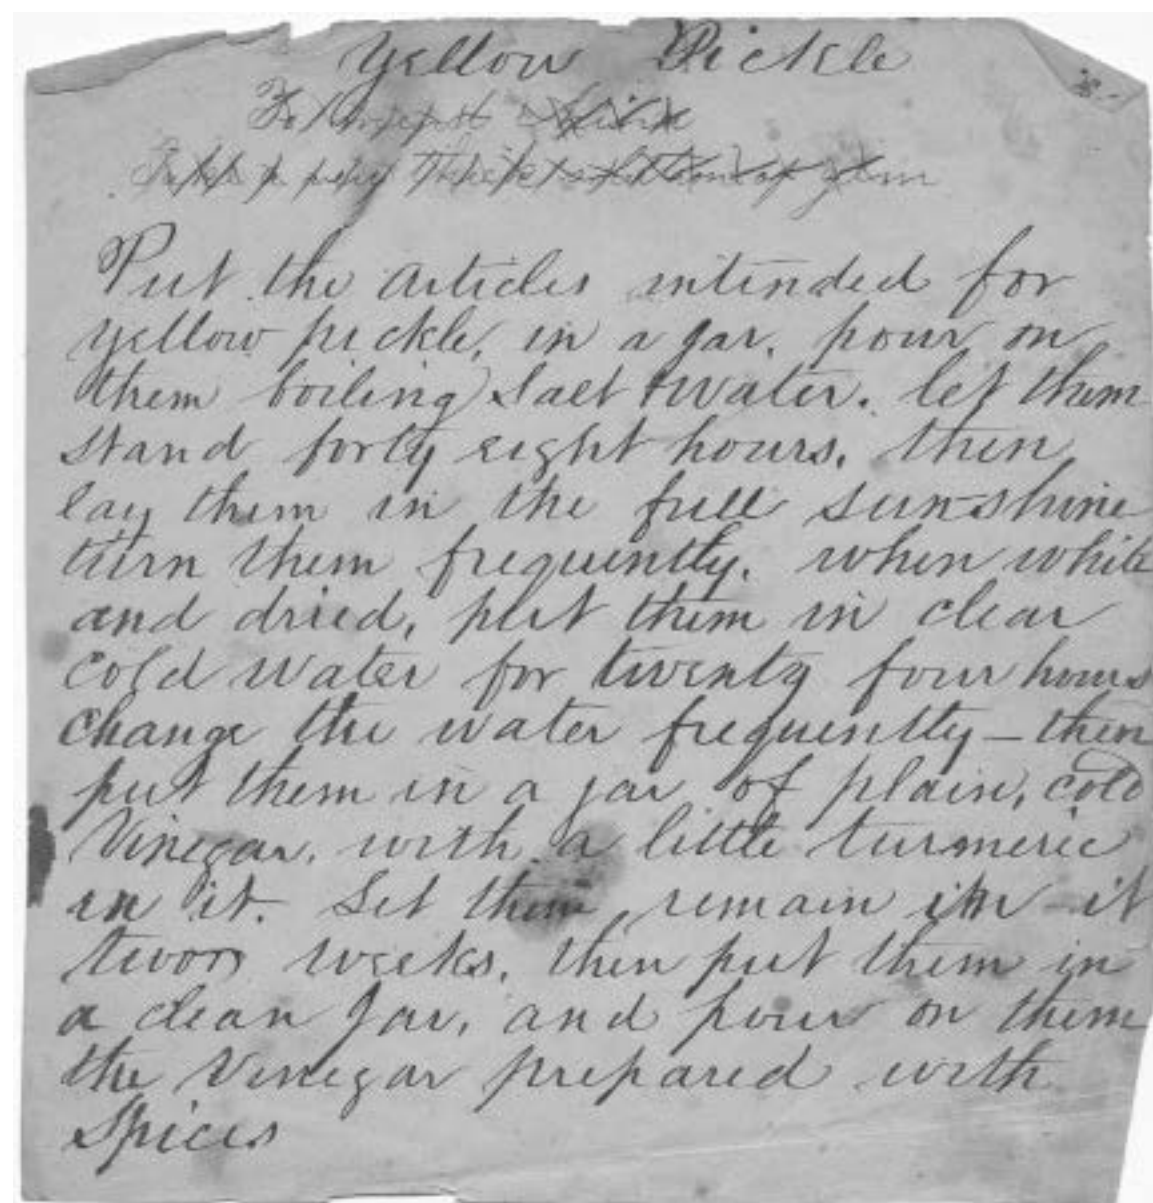 Yellow Pickle
Put the articles intended for
yellow pickle, in a jar. pour on
them boiling Salt & water. let them
stand forty eight hours. then
lay them in the full sun-shine
turn them frequently. when white
and dried, put them in clear
cold water for twenty four hours
change the water frequently - then
put them in a jar of plain, cold
Vinegar. with a little turmeric
in it. Let them remain in it
two weeks. then put them in
a clean Jar. and pour on them
the Vinegar prepared with
Spices